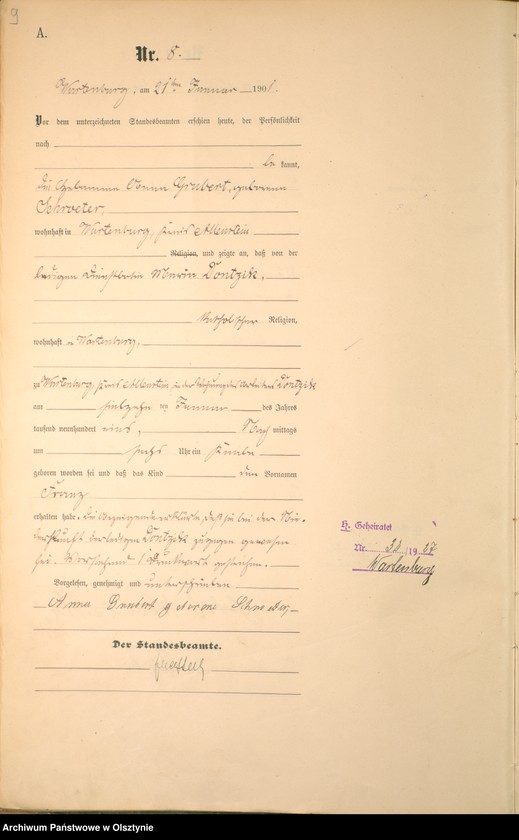 9
A.
Nr. 8.
Wartenburg, am 21ten Januar 1901.
Vor dem unterzeichneten Standesbeamten erschien heute, der Persönlichkeit
nach
be kannt,
die Hebamme Anna Grubert, geborene
Schroeter,
wohnhaft in Wartenburg, Kreis Allenstein
Religion, und zeigte an, daß von der
ledigen Maria Dontzik,
katholischer Religion,
wohnhaft in Wartenburg,
zu Wartenburg, Kreis Allenstein, in der Wohnung des Dontzik
am ten Januar des Jahres
tausend neunhundert eins, Nach mittags
um sechs Uhr ein Knabe
geboren worden sei und daß das Kind den Vornamen
Franz
erhalten habe. Die Anzeigende erklärte, daß sie bei der Nie-
derkunft der ledigen Dontzik zugegen gewesen
sei. Vorstehend 1 Druckwort gestrichen.
Vorgelesen, genehmigt und unterschrieben
Anna Grubert geborene Schroeter
Der Standesbeamte.
H. Geheiratet
Nr. /19
Wartenburg
Archiwum Państwowe w Olsztynie